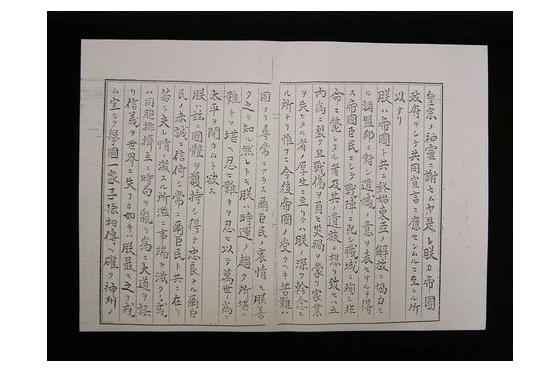 皇宗ノ神靈ニ謝セムヤ是レ朕カ帝國
政府ヲシテ共同宣言ニ應セシムルニ至レル所
以ナリ
朕ハ帝國ト共ニ終始東亞ノ解放ニ協力セ
ル諸盟邦ニ對シ遺憾ノ意ヲ表セサルヲ得
ス帝國臣民ニシテ戰陣ニ死シ職域ニ殉シ非
命ニ斃レタル者及其ノ遺族ニ想ヲ致セハ五
内爲ニ裂ク且戰傷ヲ負ヒ災禍ヲ蒙リ家業
ヲ失ヒタル者ノ厚生ニ至リテハ朕ノ深ク軫念ス
ル所ナリ惟フニ今後帝國ノ受クヘキ苦難ハ
固ヨリ尋常ニアラス爾臣民ノ衷情モ朕善
ク之ヲ知ル然レトモ朕ハ時運ノ趨ク所堪ヘ
難キヲ堪ヘ忍ヒ難キヲ忍ヒ以テ萬世ノ爲ニ
太平ヲ開カムト欲ス
朕ハ茲ニ國體ヲ護持シ得テ忠良ナル爾臣
民ノ赤誠ニ信倚シ常ニ爾臣民ト共ニ在リ
若シ夫レ情ノ激スル所濫ニ事端ヲ滋クシ或
ハ同胞排擠互ニ時局ヲ亂リ爲ニ大道ヲ誤
リ信義ヲ世界ニ失フカ如キハ朕最モ之ヲ戒
ム宜シク擧國一家子孫相傳ヘ確ク神州ノ